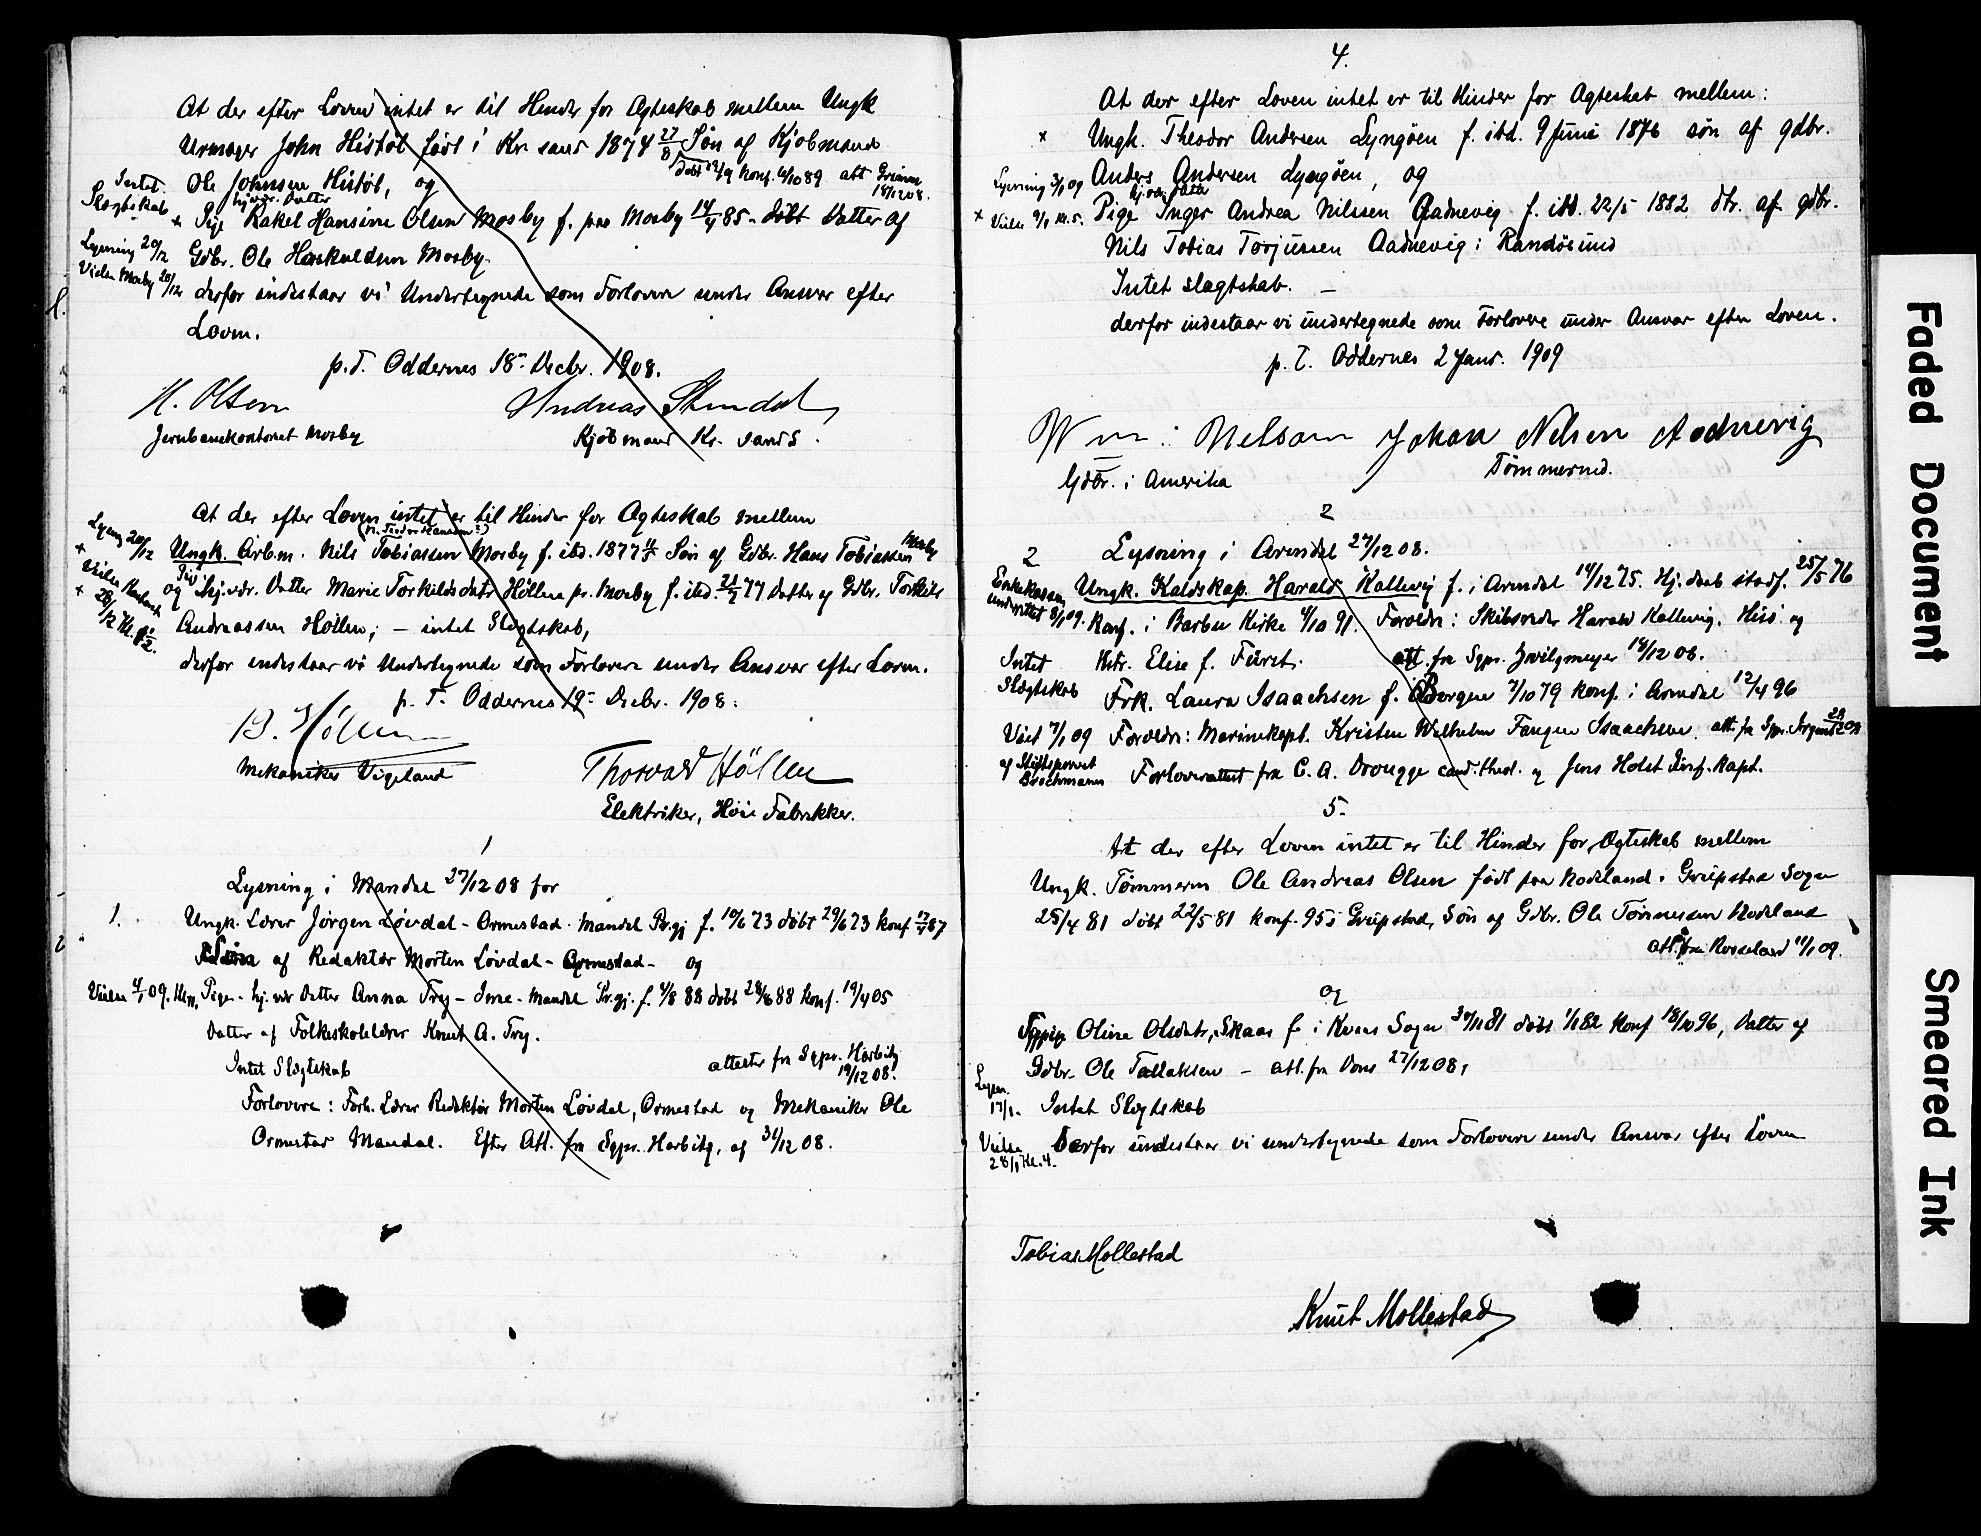 At der efter Loven intet er til Hinder for Ægteskab mellem Ungk
Urmager John Histøl født i Kr. sand 1874 27/8 Søn af Kjøbmand
døbt /9 konf. 6/10 89 att Grimm
18/12 08.
Intet Slægtskab
Ole Johnsen Histøl, og
hj.vær. Datter
x Pige Rakel Hansine Olsen Mosby f. paa Mosby 14/4 85 - døbt Datter af
Lysning 20/12
Gdbr. Ole Haskuldsen Mosby
Vielse Mosby 28/12
derfor indestaar vi Undertegnede som Forlovere under Ansvar efter
Loven.
p.T. Oddernes 18- Decbr. 1908.
H. Olsen
Andreas Stendal
Jernbanekontoret Mosby
Kjøbmand Kr. sand S.
At der efter Loven intet er til Hinder for Ægteskab mellem
Lysning 20/12
x Ungk. Arb.m. Nils Tobiassen Mosby f. ibd. 1877 Søn af Gdbr. Hans Tobiassen Mosby
Vielse
og Pige hj.vær. Datter Marie Torkildsdatr Høllen pr. Mosby f. ibd. 21/2 77 Datter af Gdbr. Torkild
x 28/12 Kl.
Andreassen Høllen; - intet Slægtskab,
derfor indestaar vi Undertegnede som Forlovere under Ansvar efter Loven.
p. T. Oddernes 19- Decbr. 1908.
B. Høllen
Mekaniker Vigeland
Thorvald Høllen
Elektriker, Høie Fabrikker.
1
Lysning i Mandal 27/12 08 for
1.
Ungk. Lærer Jørgen Løvdal - Ormestad - Mandal Pr.gj f. 10/6 73 døbt 29/6 73 konf 87
Søn af Redaktør Morten Løvdal - Ormestad - og
Vielse 4/1 09. Kl
Pige - hj. vær Datter Anna Try - Ime - Mandal Pr.gj. f. 4/8 88 døbt 28/8 88 konf. 19/4 05
Datter af Folkeskolelærer Knut A. Try.
Intet Slægtskab
attester fra Sgpr. Harbitz
19/12 08.
Forlovere: Forh. Lærer Redaktør Morten Løvdal, Ormestad og Mekaniker Ole
Ormestad Mandal. Efter Att. fra Sgpr. Harbitz, af 31/12 08.
4.
At der efter Loven intet er til Hinder for Ægteskab mellem:
x Ungk. Theodor Andersen Lyngøen f. ibd. 9 Juni 1876 søn af gdbr.
Lysning 3/1 09
Anders Andersen Lyngøen, og
hj.vær. datter
x Vielse 9/1 kl. 5.
Pige Inger Andrea Nilssen Aadnevig f. ibd. 22/5 1882 dtr. af gdbr.
Nils Tobias Torjussen Aadnevig i Randøsund
Intet slægtskab. -
derfor indestaar vi undertegnede som Forlovere under Ansvar efter Loven.
p. T. Oddernes 2 Janr. 1909
Wm: Nelson
Johan Nilsen Aadnevig
Gdbr. i Amerika
Tømmermd.
2
2
Lysning i Arendal 27/12 08.
Enkekassen
underrettet 8/1 09.
Ungk. Kaldskap. Harald Kallevig f. i Arendal 14/12 75. Hj. daab stadf. 25/5 76
Konf. i Barbu Kirke 4/10 91. Forældre: Skibsreder Harald Kallevig. Hisø og
Intet Slægtskab
Hstr. Elise f. Fürst. att. fra Sgpr. Zwilgmeyer 14/12 08.
Frk. Laura Isaachsen f. Bergen 7/10 79 konf. i Arendal 12/4 96
Viet 7/1 09
af Stiftsprovst
Brochmann
Forældre: Marinekapt. Kristen Wilhelm Fangen Isaachsen. att. fra Sgpr. 28/12 08
Forloverattest fra C. A. Drougge cand. theol. og Jens Holst Inf. Kapt.
5.
At der efter Loven intet er til Hinder for Ægteskab mellem
Ungk. Tømmerm Ole Andreas Olsen født paa Nodeland i Greipstad Sogn
25/4 81 døbt 22/5 81 konf. 95 i Greipstad, Søn af Gdbr. Ole Tønnesen Nodeland
att. fra Rosseland 11/1 09.
og
Pige Oline Olsdatr, Skaar f. i Kvaas Sogn 30/11 81 døbt 1/1 82 konf 18/10 96, Datter af
Gdbr. Ole Tallaksen - att. fra Vons 27/12 08,
Lysn.
17/1.
Intet Slægtskab
Vielse
28/1 Kl. 4.
Derfor indestaar vi undertegnede som Forlovere under Ansvar efter Loven
Tobias Mollestad
Knut Mollestad
Faded Document
Smeared Ink